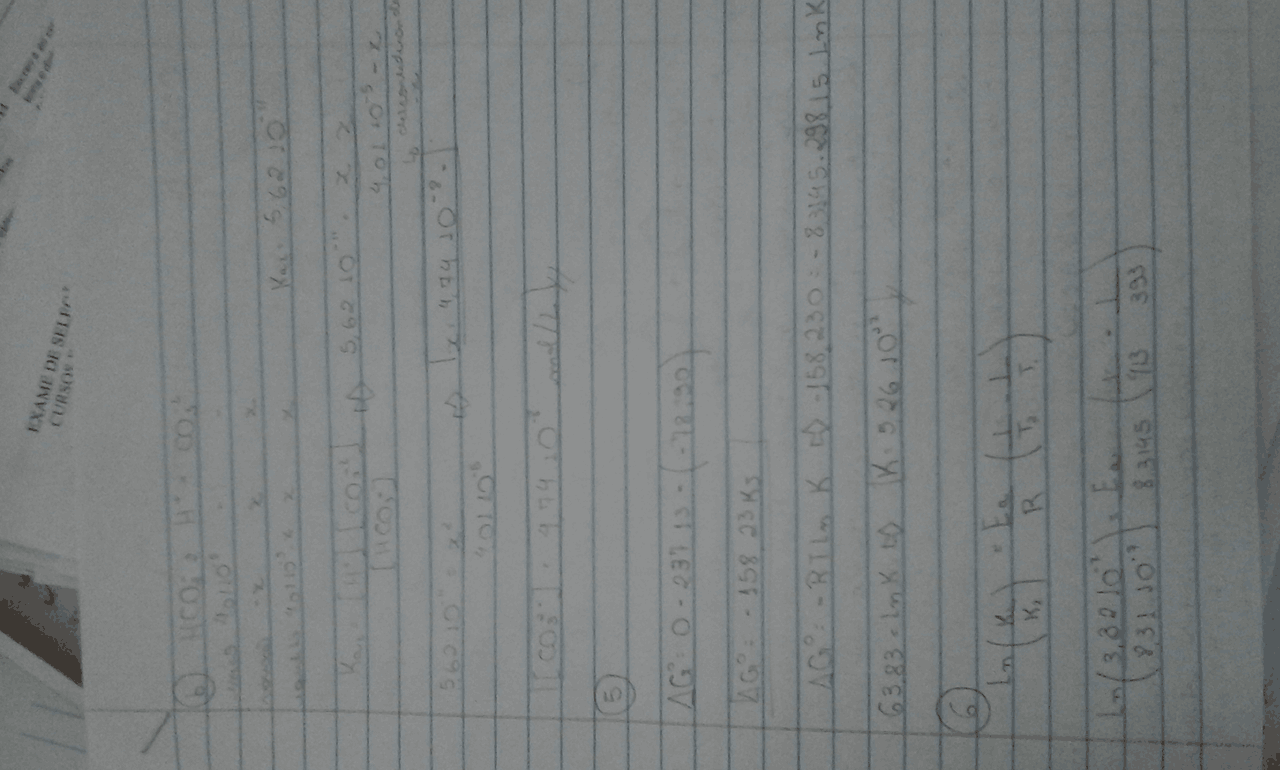 EXAME DE SELEÇ
CURSOS
b) HCO₃⁻ ⇌ H⁺ + CO₃²⁻
4,01 10⁻⁵ - -
-x x x
4,01 10⁻⁵-x x x Ka₂ = 5,62 10⁻¹¹
Ka₂ = [H⁺] [CO₃²⁻] ⇒ 5,62 10⁻¹¹ = x · x
[HCO₃⁻] 4,01 10⁻⁵ - x
5,62 10⁻¹¹ = x² ⇒ x = 4,74 · 10⁻⁸
4,01 10⁻⁵
[CO₃²⁻] = 4,74 · 10⁻⁸ mol/L
5
ΔG° = 0 - 237,13 - (-78,90)
ΔG° = - 158,23 KJ
ΔG° = - RT ln K ⇒ -158.230 = - 8,3145 · 298,15 · ln K
63,83 = ln K ⇒ K = 5,26 · 10²⁷
6
Ln (K₂ / K₁) = Ea / R (1 / T₂ - 1 / T₁)
Ln (3,32 10⁻³ / 8,31 10⁻³) = Ea / 8,3145 (1 / 413 - 1 / 393)